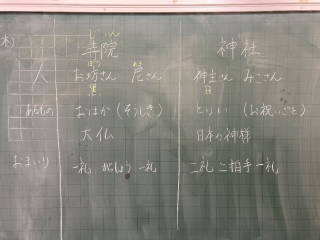 木)
じいん
寺院 神社
人 お坊さん 尼さん 神主さん みこさん
黒 白
あるもの おはか(そうしき) とりい(お祝いごと)
大仏 日本の神様
おまいり 一礼 がっしょう 一礼 二礼 二拍手 一礼